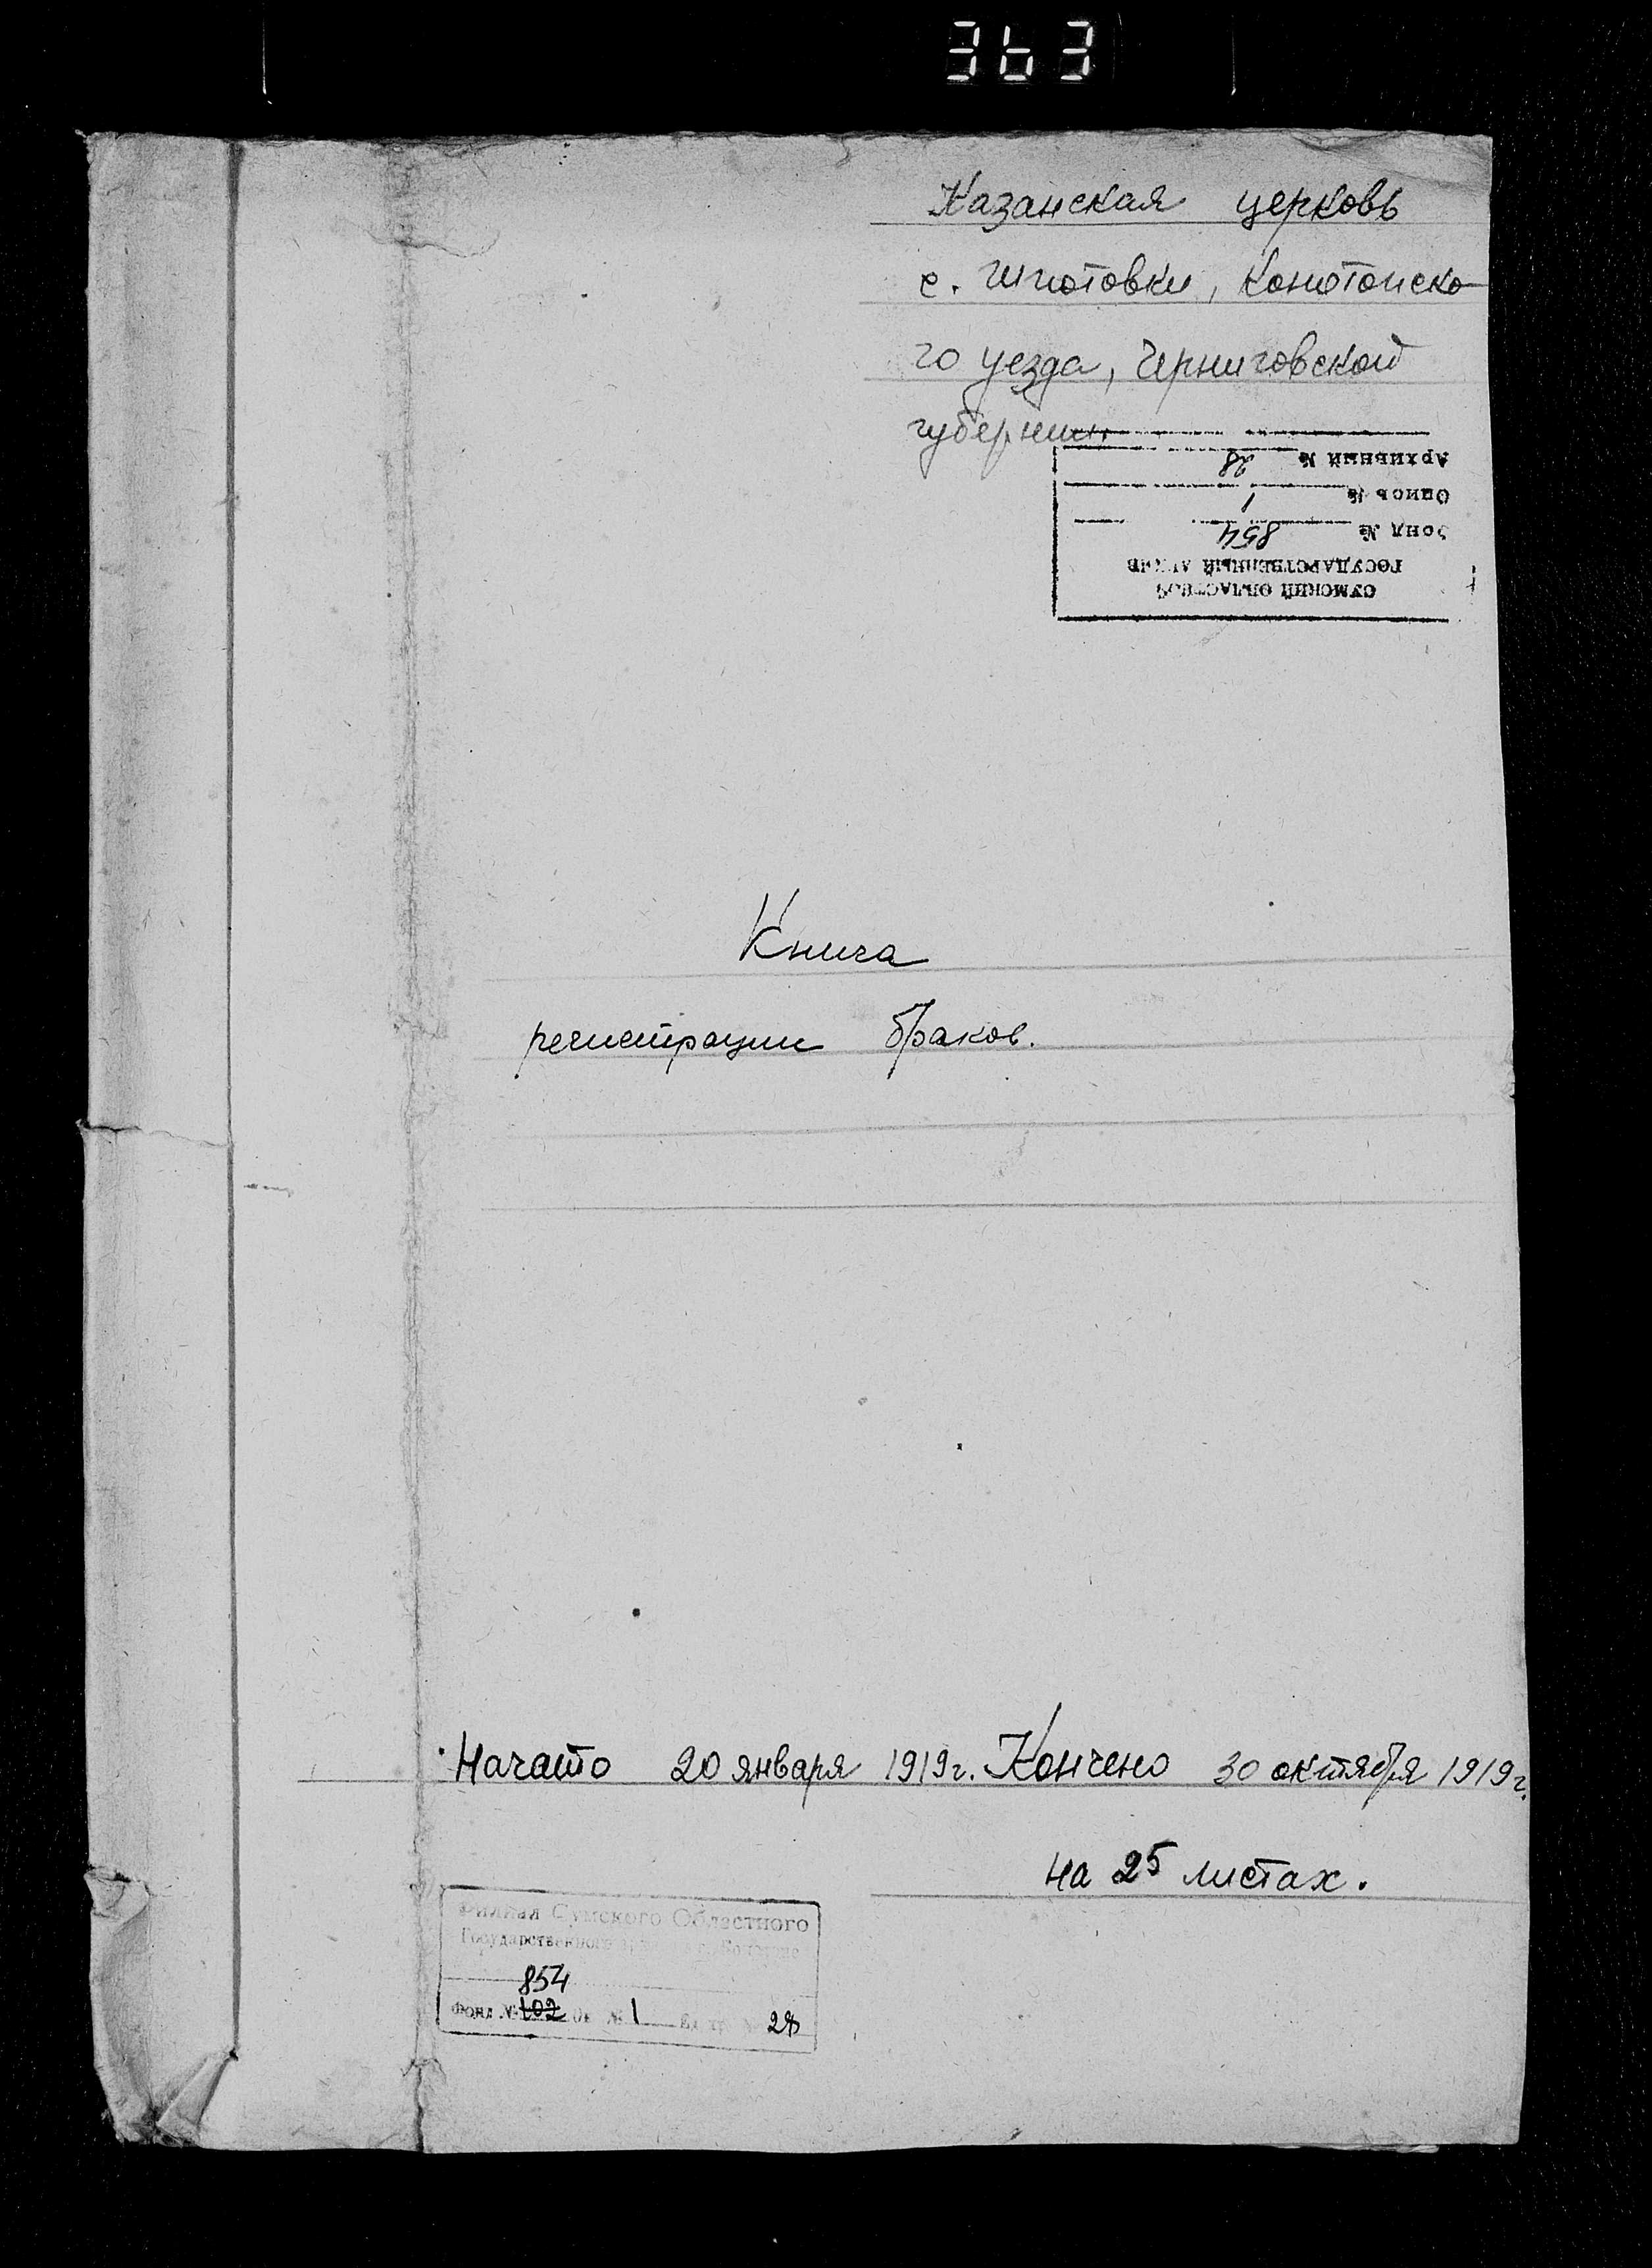 363
Казанская церковь
с. Шпотовки, Конотопско-
го уезда, Черниговской
губернии
СУМСКИЙ ОБЛАСТНОЙ
ГОСУДАРСТВЕННЫЙ АРХИВ
Фонд № 854
Опись № 1
Архивный № 28
Книга
регистрации браков.
Начато 20 января 1919г. Кончено 30 октября 1919г.
на 25 листах.
Филиал Сумского Областного
Государственного
854
Фонд № 102 Оп № 1 Ед. хр. 28